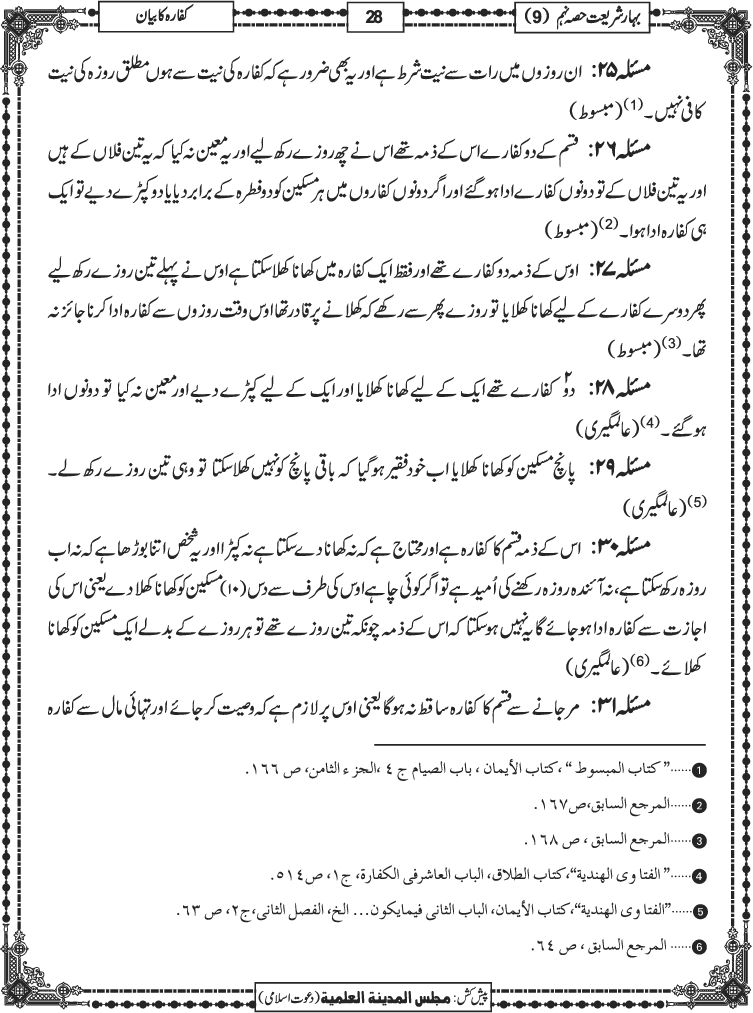 بہار شریعت حصہ نہم (9)
28
کفارہ کا بیان
مسئلہ ۲۵: ان روزوں میں رات سے نیت شرط ہے اور یہ بھی ضرور ہے کہ کفارہ کی نیت سے ہوں مطلق روزہ کی نیت
کافی نہیں۔(1) (مبسوط)
مسئلہ ۲۶: قسم کے دو کفارے اس کے ذمہ تھے اس نے چھ روزے رکھ لیے اور یہ معین نہ کیا کہ یہ تین فلاں کے ہیں
اور یہ تین فلاں کے تو دونوں کفارے ادا ہوگئے اور اگر دونوں کفاروں میں ہر مسکین کو دو فطرہ کے برابر دیا یا دو کپڑے دیے تو ایک
ہی کفارہ ادا ہوا۔(2) (مبسوط)
مسئلہ ۲۷: اوس کے ذمہ دو کفارے تھے اور فقط ایک کفارہ میں کھانا کھلا سکتا ہے اوس نے پہلے تین روزے رکھ لیے
پھر دوسرے کفارے کے لیے کھانا کھلایا تو روزے پھر سے رکھے کہ کھلانے پر قادر تھا اوس وقت روزوں سے کفارہ ادا کرنا جائز نہ
تھا۔(3) (مبسوط)
مسئلہ ۲۸: دو۲ کفارے تھے ایک کے لیے کھانا کھلایا اور ایک کے لیے کپڑے دیے اور معین نہ کیا تو دونوں ادا
ہوگئے۔(4) (عالمگیری)
مسئلہ ۲۹: پانچ مسکین کو کھانا کھلایا اب خود فقیر ہوگیا کہ باقی پانچ کو نہیں کھلا سکتا تو وہی تین روزے رکھ لے۔
(5) (عالمگیری)
مسئلہ ۳۰: اس کے ذمہ قسم کا کفارہ ہے اور محتاج ہے کہ نہ کھانا دے سکتا ہے نہ کپڑا اور یہ شخص اتنا بوڑھا ہے کہ نہ اب
روزہ رکھ سکتا ہے، نہ آئندہ روزہ رکھنے کی اُمید ہے تو اگر کوئی چاہے اوس کی طرف سے دس (۱۰) مسکین کو کھانا کھلا دے یعنی اس کی
اجازت سے کفارہ ادا ہو جائے گا یہ نہیں ہوسکتا کہ اس کے ذمہ چونکہ تین روزے تھے تو ہر روزے کے بدلے ایک مسکین کو کھانا
کھلائے۔(6) (عالمگیری)
مسئلہ ۳۱: مر جانے سے قسم کا کفارہ ساقط نہ ہوگا یعنی اوس پر لازم ہے کہ وصیت کر جائے اور تہائی مال سے کفارہ
1......"کتاب المبسوط"، کتاب الأیمان، باب الصیام ج ٤، الجزء الثامن، ص ١٦٦.
2......المرجع السابق، ص١٦٧.
3......المرجع السابق، ص ١٦٨.
4......"الفتاوی الهندیة"، کتاب الطلاق، الباب العاشر فی الکفارة، ج١، ص٥١٤.
5......"الفتاوی الهندیة"، کتاب الأیمان، الباب الثانی فیمایکون... الخ، الفصل الثانی، ج٢، ص ٦٣.
6...... المرجع السابق، ص ٦٤.
پیش کش: مجلس المدینۃ العلمیۃ (دعوت اسلامی)